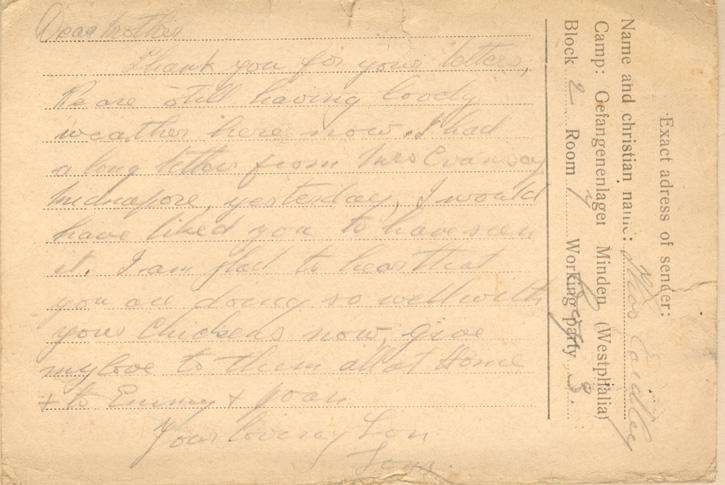 Dear Mother
Thank you for your letters,
We are still having lovely
weather here now. I had
a long letter from Mrs Evans of
Midnapore, yesterday, I would
have liked you to have seen
it. I am glad to hear that
you are doing so well with
your Chickens now, give
my love to them all at Home
+ to Emmy + Joan
Your loving Son
Tom.
Exact adress of sender:
Name and christian name: Thos
Camp: Gefangenenlager Minden (Westphalia)
Block 2 Room Working party